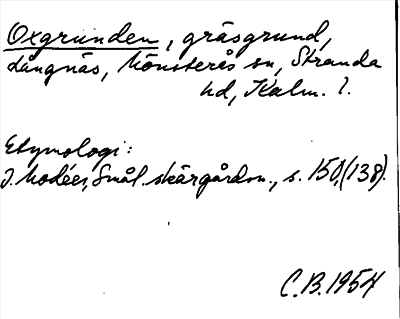 Oxgrunden, gräsgrund,
Långnäs, Mönsterås sn, Stranda
hd, Kalm. l.
Etymologi:
J. Modéer, Smål. skärgårdsn., s. 150, (138).
C.B. 1954